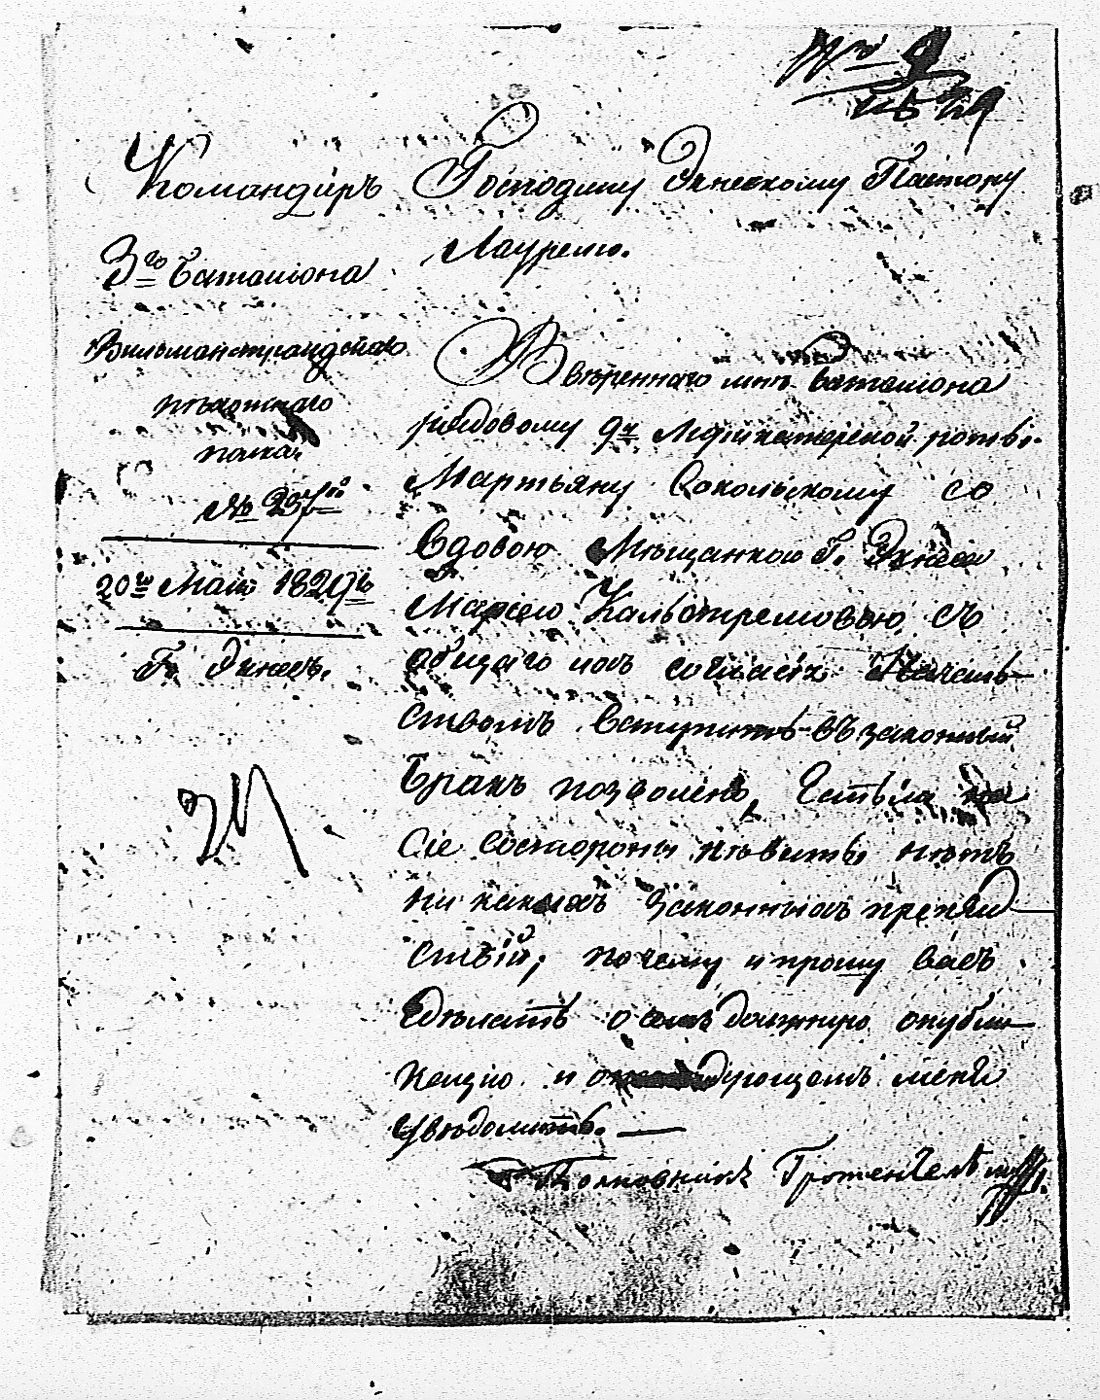 № 9
Командиръ
3го Баталіона
Вильманстрандскаго
пѣхотнаго
полка
№ 237
20го Маія 1829го
Г. Экнесъ.
Господину Экнескому Пастору
Лаурелю.
Ввѣреннаго мнѣ баталіона
рядовому 9й Мушкатерской роты
Мартьяну Сокольскому со
вдовою Мѣщанкою Г. Экнеса
Маріею Кальстремовою съ
общаго ихъ согласія Началь-
ствомъ вступить въ законный
бракъ позволено,
сіе состороны невѣсты нѣтъ
ни какихъ законныхъ препят-
ствій, почему и прошу васъ
сдѣлать о семъ должную опубли-
кацію и о меня
увѣдомить. —
Полковникъ Гротенгельмъ